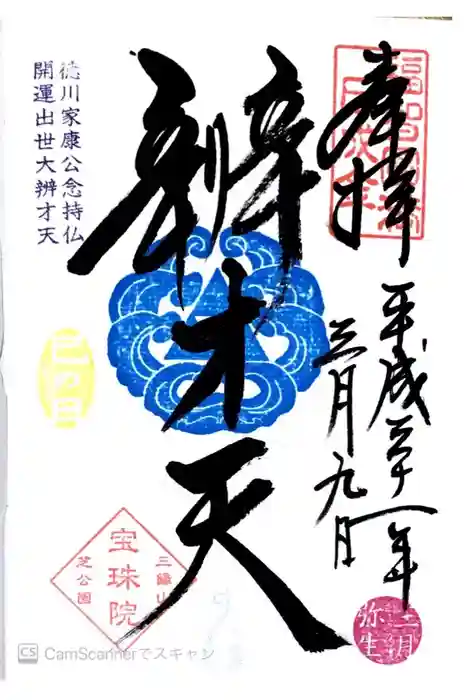 奉拝
平成三十一年
三月九日
三月
弥生
辨才天
徳川家康公念持仏
開運出世大辨才天
己巳日
三縁山
宝珠院
芝公園
CS CamScannerでスキャン